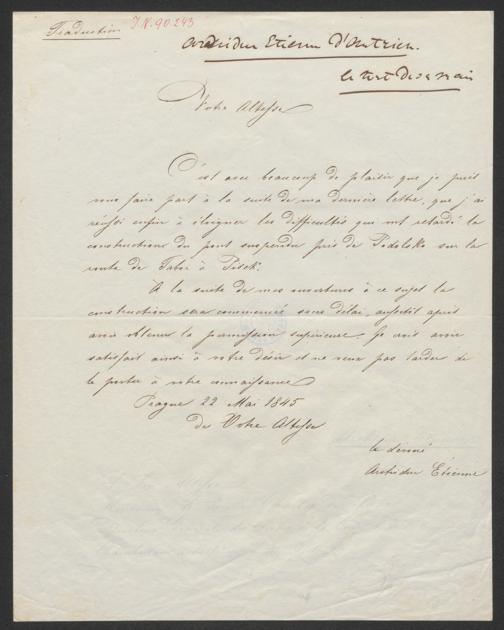 Traduction
I.N. 90.243
Archiduc Etienne d'Autriche.
Votre Altesse
C'est avec beaucoup de plaisir que je puis
vous faire part à la suite de ma dernière lettre, que j'ai
réussi enfin à éloigner les difficultés qui ont retardé la
construction du pont suspendu près de Podolsko sur la
route de Tabor à Pisek.
A la suite de mes ouvertures à ce sujet la
construction sera commencée sans délai, aussitôt après
avoir obtenu la permission supérieure. Je crois avoir
satisfait ainsi à votre désir et ne veux pas tarder de
le porter à votre connaissance
Prague 22 Mai 1845
de Votre Altesse
le dévoué
Archiduc Etienne